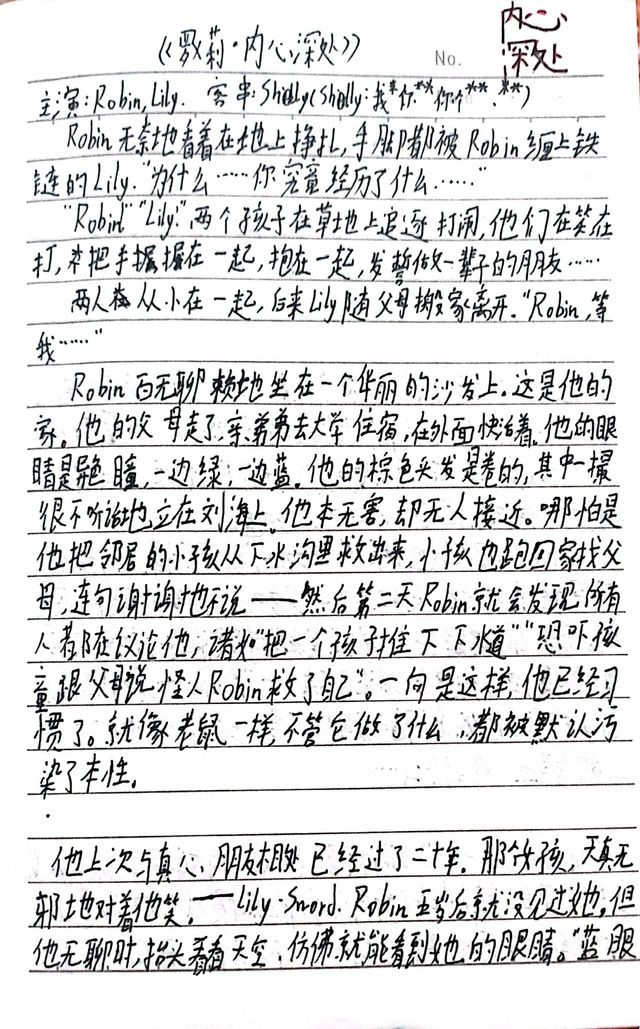 内心
深处
《罗莉·内心深处》
No.
主演:Robin, Lily. 客串:Shelly(Shelly:我*你**你个**.**)
Robin无奈地看着在地上挣扎,手脚都被Robin缠上铁
链的Lily."为什么……你究竟经历了什么……"
"Robin!""Lily!"两个孩子在草地上追逐打闹,他们在笑在
打,来把手握握在一起,抱在一起,发誓做一辈子的朋友……
两人从小在一起,后来Lily随父母搬家离开."Robin,等
我……"
Robin百无聊赖地坐在一个华丽的沙发上。这是他的
家。他的父母走了,亲弟弟去大学住宿,在外面快活着.他的眼
睛是异色瞳,一边绿,一边蓝.他的棕色头发是卷的,其中一撮
很不听话地立在刘海上.他本无害,却无人接近。哪怕是
他把邻居的小孩从下水沟里救出来,小孩也跑回家找父
母,连句谢谢也不说——然后第二天Robin就会发现所有
人都在议论他,诸如"把一个孩子推下下水道""恐吓孩
童跟父母说怪人Robin救了自己"。一向是这样,他已经习
惯了。就像老鼠一样,不管它做了什么,都被默认污
染了本性。
他上次与真心朋友相处已经过了二十年.那个女孩,天真无
邪地对着他笑.——Lily·Snord. Robin五岁后就没见过她.但
他无聊时,抬头看看天空,仿佛就能看到她的眼睛."蓝眼